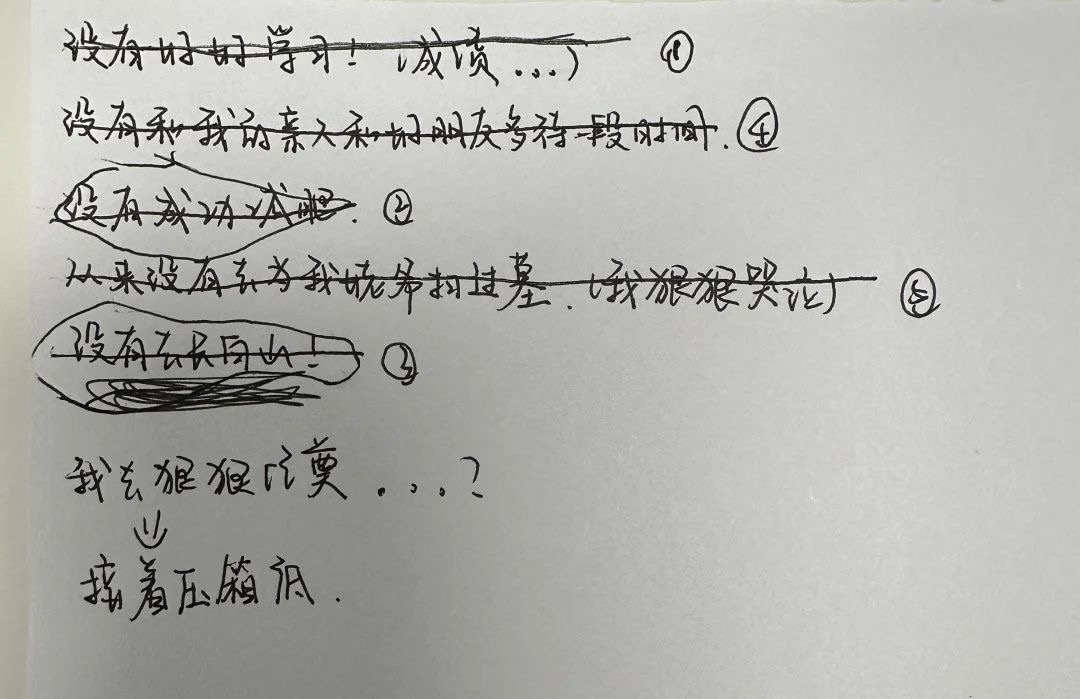 没有好好学习！（成绩...） ①
没有和我的亲人和好朋友多待一段时间. ④
没有成功减肥. ②
从来没有去为我姥爷扫过墓.（我狠狠哭泣） ⑤
没有去长白山！ ③
我去狠狠 ....?
接着压箱底.